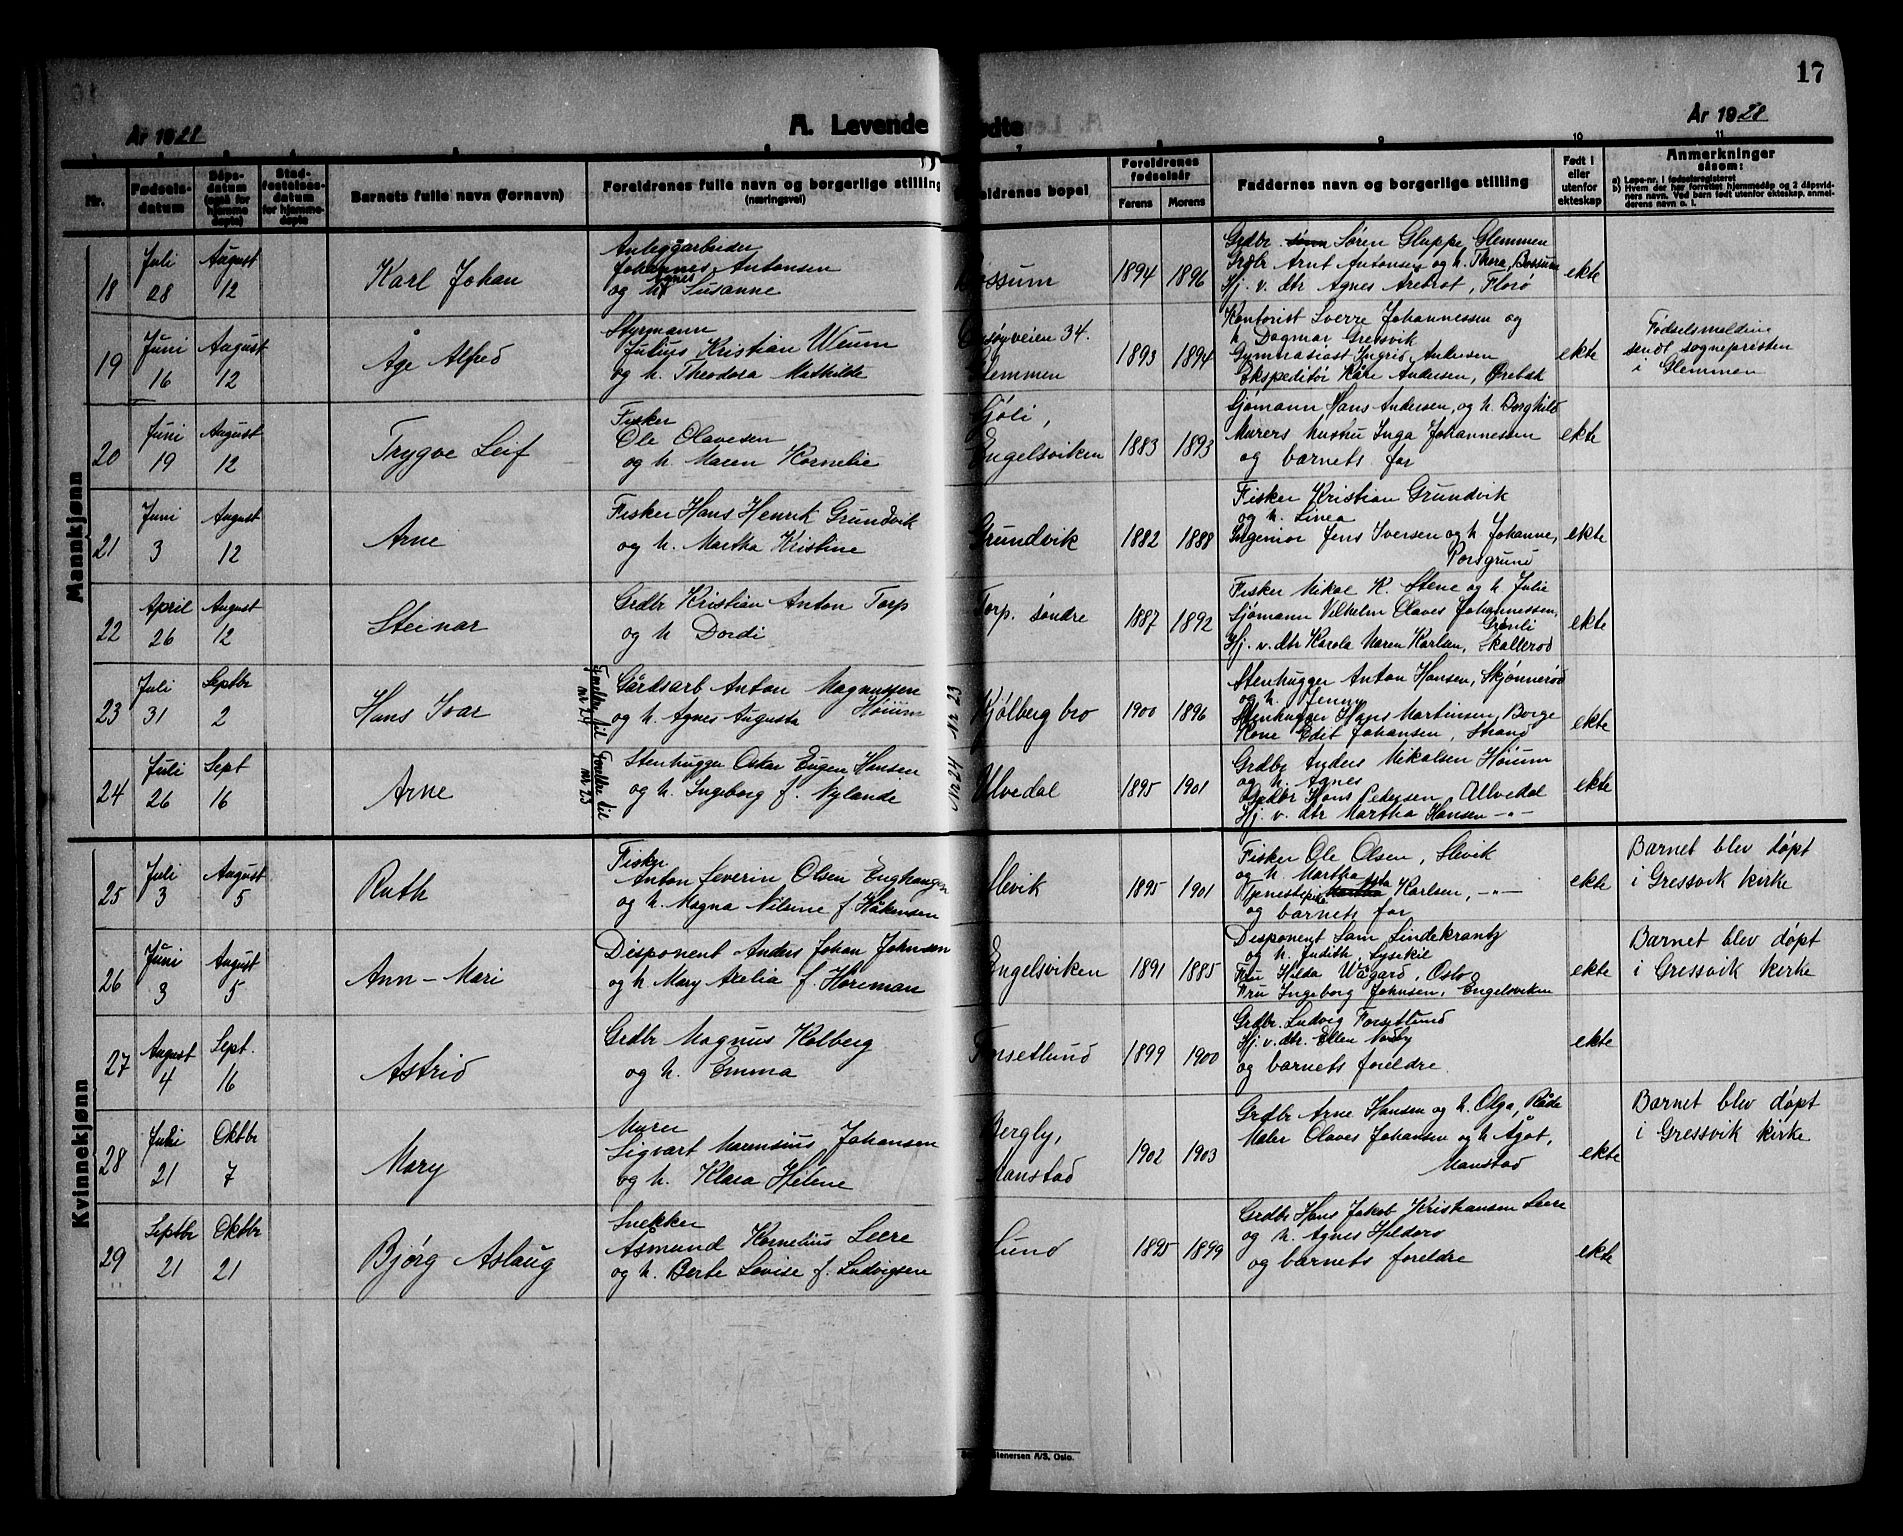 17
År 1928
A. Levende
ødte
År 1928
Nr.
Fødsels-datum
Dåps-datum (også for hjemme døpte)
Stad-festelses-datum for hjemme-døpte
Barnets fulle navn (fornavn)
Foreldrenes fulle navn og borgerlige stilling (næringsvei)
eldrenes bopel
Foreldrenes fødselsår
Farens
Morens
Faddernes navn og borgerlige stilling
Født i eller utenfor ekteskap
Anmerkninger såsom:
a) Løpe-nr. i fødselsregisteret
b) Hvem der har forrettet hjemmedåp og 2 dåpsvid-
ners navn. Ved barn født utenfor ekteskap, anmel-
derens navn o. l.
7
8
9
10
11
Mannkjønn
18
Juli 28
August 12
Karl Johan
Anleggarbeider
Johannes Antonsen
og h. Agnes Susanne
ossum
1894
1896
Grdbr. Søren Gluppe, Glemmen
Grdbr Arnt Antonsen og h. Thora, Bossum
Hj. v. dtr Agnes Arebrot, Florø
ekte
19
Juni 16
August 12
Åge Alfred
Styrmann
Julius Kristian Weum
og h. Theodora Mathilde
søyveien 34.
lemmen
1893
1894
Kontorist Sverre Johannessen og
h. Dagmar Gressvik
Gymnasiast Ingrid Andersen
Ekspeditør Kåre Andersen, Ørebæk
ekte
Fødselsmelding
sendt sognepresten
i Glemmen
20
Juni 19
August 12
Trygve Leif
Fisker
Ole Olavesen
og h. Maren Kornelie
jøli,
Engelsviken
1883
1893
Sjømann Hans Andersen, og h. Borghild
Murers hustru Inga Johannessen
og barnets far
ekte
21
Juni 3
August 12
Arne
Fisker Hans Henrik Grundvik
og h. Martha Kristine
Grundvik
1882
1888
Fisker Kristian Grundvik
og h. Linea
Ingeniør Jens Iversen og h. Johanne,
Porsgrund
ekte
22
April 26
August 12
Steinar
Grdbr Kristian Anton Torp
og h Dordi
Torp. søndre
1887
1892
Fisker Mikal K. Stene og h. Julie
Sjømann Vilhelm Olaves Johannessen,
Grønli
Hj. v. dtr Karola Maren Karlsen, Skallerød
ekte
23
Juli 31
Septbr 2
Hans Ivar
Foreldre til nr 24
Gårdsarb Anton Magnussen
Høium
og h. Agnes Augusta
Nr 23
Kjølberg bro
1900
1896
Stenhugger Anton Hansen, Skjønnerød
og h. Jenny
Stenhugger Hans Martinsen, Borge
Kone Edit Johansen, Strand
ekte
24
Juli 26
Sept 16
Arne
Foreldre til nr 23
Stenhugger Oskar Eugen Hansen
og h. Ingeborg f. Nylande
Nr 24
Ulvedal
1895
1901
Grdbr Anders Mikalsen Høium
og h. Agnes
Grdbr Hans Pedersen, Allvedal
Hj. v. dtr Martha Hansen -"-
ekte
Kvinnekjønn
25
Juli 3
August 5
Ruth
Fisker
Anton Severin Olsen Enghaugen
og h. Magna Nilsine f. Håkensen
Slevik
1895
1901
Fisker Ole Olsen, Slevik
og h. Martha
Karlsen, -"-
og barnets far
ekte
Barnet blev døpt
i Gressvik kirke
26
Juni 3
August 5
Ann-Mari
Disponent Anders Johan Johnsen
og h Mary Acelia f. Horeman
Engelsviken
1891
1885
Disponent Sam Lindekrantz
og h. Judith, Lysekil
Fru Hilda Wågård, Oslo
Fru Ingeborg Johnsen, Engelsviken
ekte
Barnet blev døpt
i Gressvik kirke
27
August 4
Sept. 16
Astrid
Grdbr Magnus Kolberg
og h. Emma
Forsetlund
1899
1900
Grdbr. Ludvig Forsetlund
Hj. v. dtr. Ellen Nordby
og barnets foreldre.
ekte
28
Juli 21
Oktbr 7
Mary
Murer
Sigvart Marensius Johansen
og h. Klara Helene
Bergly,
Manstad
1902
1903
Grdbr Arne Hansen og h. Olga, Råde
Maler Olaves Johansen og h Ågot,
Manstad
ekte
Barnet blev døpt
i Gressvik kirke
29
Septbr 21
Oktbr 21
Bjørg Aslaug
Snekker
Åsmund Kornelius Leere
og h. Berte Lovise f. Ludvigsen
Lund
1895
1899
Grdbr Hans Jakob Kristiansen Leere
og h. Agnes Hildero
og barnets foreldre
ekte
tenersen A/S, Oslo.